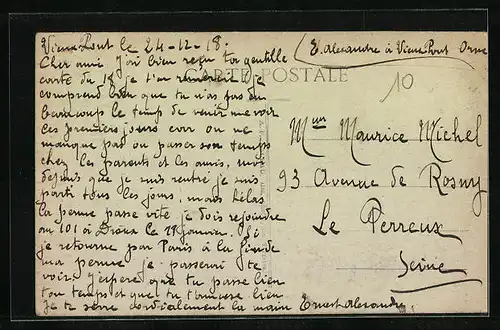 Vieux Pont le 24-12-18.
Cher ami J'ai bien reçu ta gentille
carte du 18 je t'en remercie. Je
comprend bien que tu n'as pas eu
beaucoup le temps de venir me voir
ces premiers jours car on ne
manque pas où passer son temps
chez les parents et les amis,
depuis que je suis rentré je suis
parti tous les jours, mais hélas
la perme passe vite je dois rejoindre
au 101 à Dreux le Janvier. Si
je retourne par Paris à la fin de
ma perme je passerai te
voir. J'espère que tu passe bien
ton temps et que tu t'amuse bien
Je te serre cordialement la main Ernest Alexandre.
E. Alexandre à Vieux Pont Orne
CARTE POSTALE
10
Mr Maurice Michel
93 Avenue de Rosny
Le Perreux
Seine